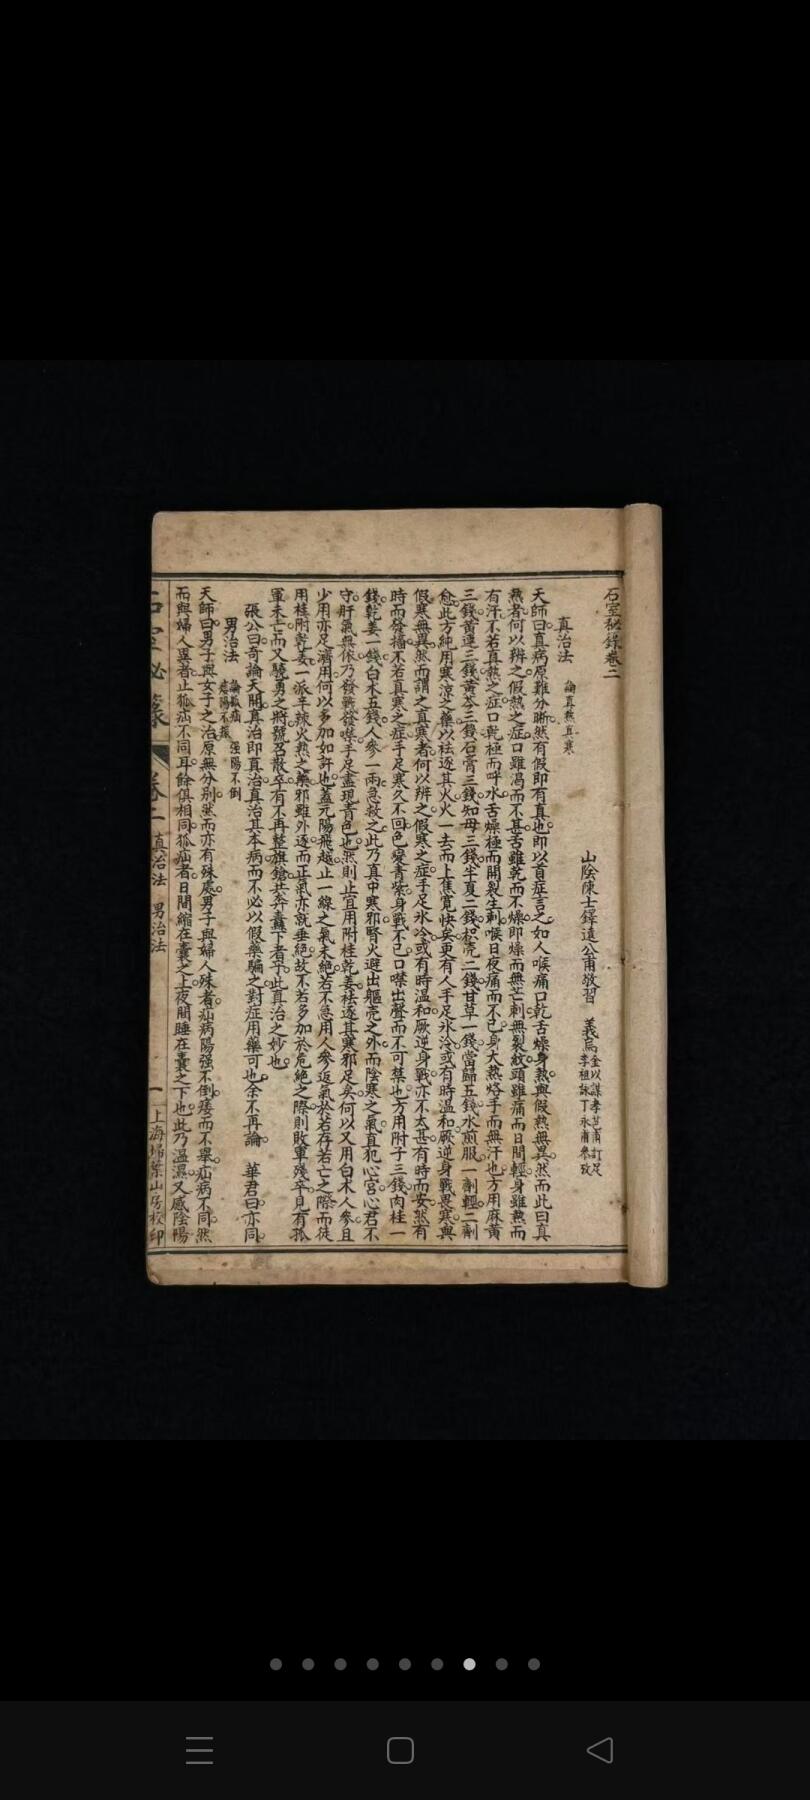 石室秘錄卷二
山陰陳士鐸遠公甫敬習 義烏金以謀孝芑甫訂定 李祖詠丁永甫參攷
真治法 論真熱真寒
天師曰真病原難分晰然有假即有真也即以首症言之如人喉痛口乾舌燥身熱與假熱無異然而此曰真
熱者何以辨之假熱之症口雖渴而不甚舌雖乾而不燥即燥而無芒刺無裂紋頭雖痛而日間輕身雖熱而
有汗不若真熱之症口乾極而呼水舌燥極而開裂生刺喉日夜痛而不已身大熱烙手而無汗也方用麻黃
三錢黃連三錢黃芩三錢石膏三錢知母三錢半夏二錢枳壳二錢甘草一錢當歸五錢水煎服一劑輕二劑
愈此方純用寒涼之藥以祛逐其火火一去而上焦寬快安更有人手足冰冷或有時溫和厥逆身戰畏寒與
假寒無異然而謂之真寒者何以辨之假寒之症手足冰冷或有時溫和厥逆身戰亦不太甚有時而安然有
時而發搐不若真寒之症手足寒久不回色變青紫身戰不已口噤出聲而不可禁也方用附子三錢肉桂一
錢乾姜一錢白术五錢人參一兩急救之此乃真中寒邪腎火避出軀壳之外而陰寒之氣直犯心宮心君不
守肝氣無依乃發戰發噤手足盡現青色也然則止宜用附桂乾姜祛逐其寒邪足矣何以又用白术人參且
少用亦足濟用何以多加如許也蓋元陽飛越止一線之氣未絕若不急用人參返氣於若存若亡之際而徒
用桂附乾姜一派辛辣火熱之藥邪雖外逐而正氣亦就垂絕故不若多加於危絕之際則敗軍殘卒見有孤
軍未亡而又驍勇之將號召散卒有不再整旗鎗共奔纛下者乎此真治之妙也
張公曰奇論天開真治即真治真治其本病而不必以假藥騙之對症用藥可也余不再論 華君曰亦同
男治法 論瓡疝 強陽不倒 痿陽不振
天師曰男子與女子之治原無分別然而亦有殊處男子與婦人殊者疝病陽强不倒痿而不舉疝病不同然
而與婦人異者止狐疝不同耳餘俱相同狐疝者日間縮在囊之上夜間睡在囊之下也此乃溫濕又感陰陽
石室秘錄 卷二 真治法 男治法 一 上海埽葉山房校印